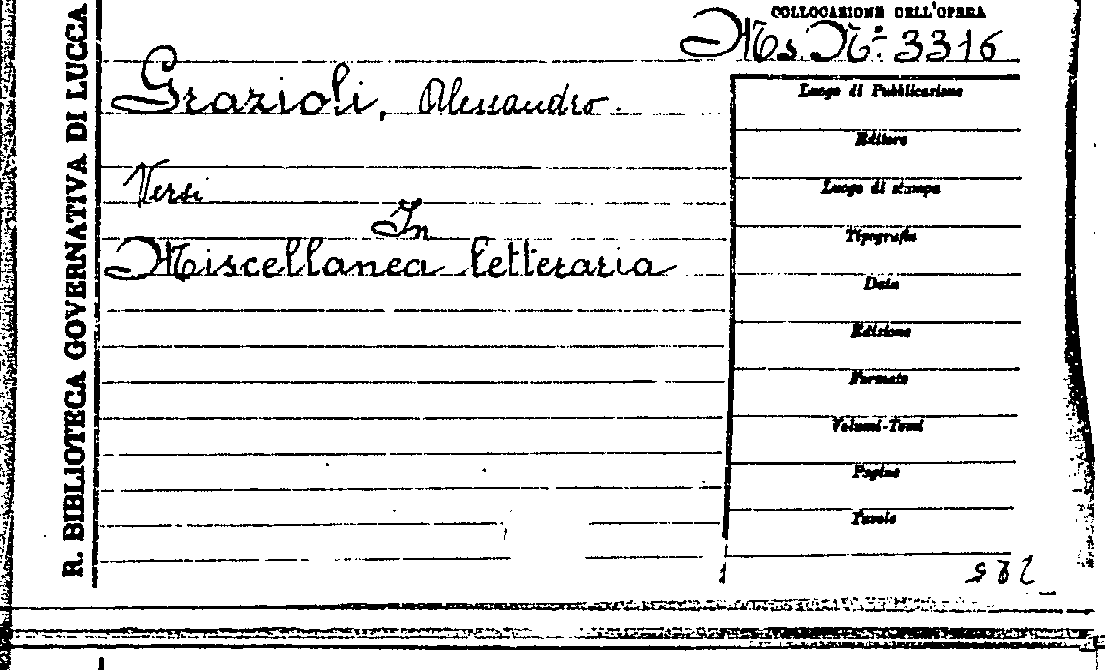 R. BIBLIOTECA GOVERNATIVA DI LUCCA
COLLOCAZIONE DELL'OPERA
Ms. N.º 3316
Grazioli, Alessandro.
Versi
In
Miscellanea letteraria
Luogo di Pubblicazione
Editore
Luogo di stampa
Tipografia
Data
Edizione
Formato
Volumi-Tomi
Pagine
Tavole